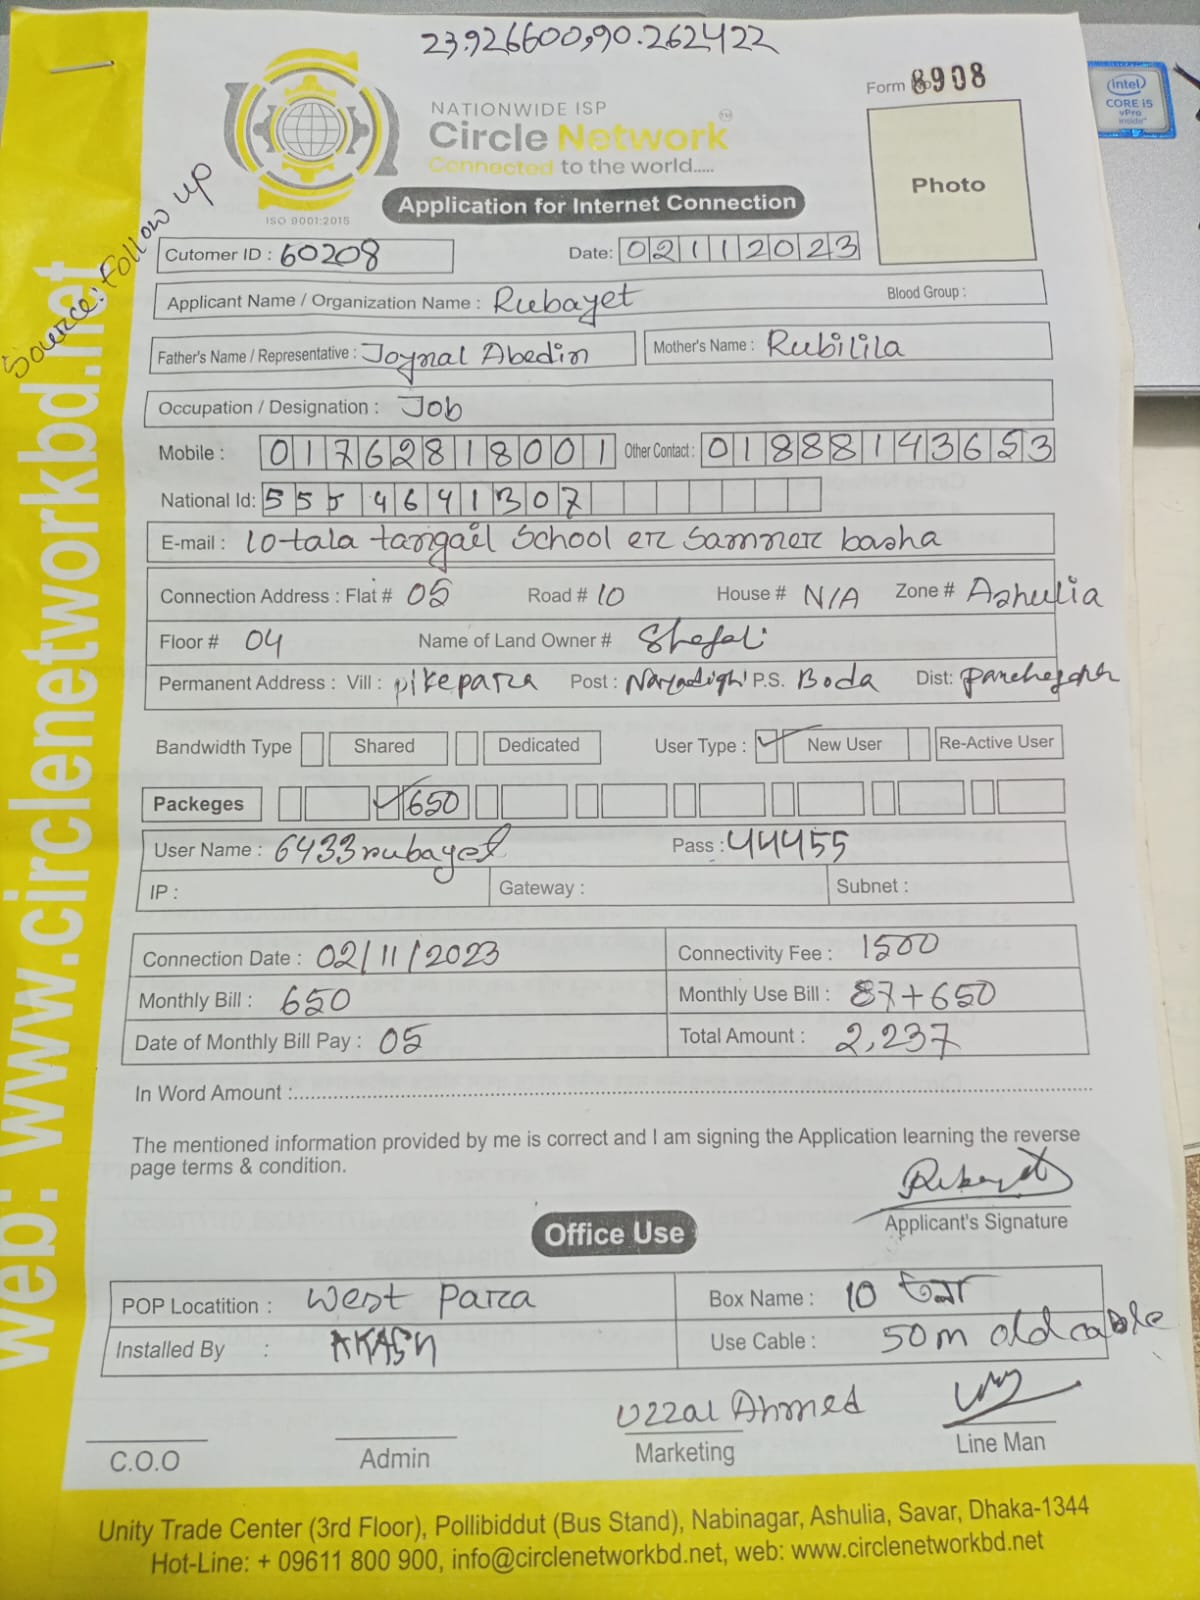 23.926600,90.262422
Form 8908
intel
CORE i5
vPro
inside
NATIONWIDE ISP
Circle Network
Connected to the world.....
ISO 9001:2015
Application for Internet Connection
Photo
Source: Follow up
Cutomer ID : 60208 Date: 02112023
Applicant Name / Organization Name : Rubayet Blood Group :
Father's Name / Representative : Joynal Abedin Mother's Name : Rubilila
Occupation / Designation : Job
Mobile : 01762818001 Other Contact : 01888143653
National Id: 5554641307
E-mail : 10-tala tangail School er samner basha
Connection Address : Flat # 05 Road # 10 House # N/A Zone # Ashulia
Floor # 04 Name of Land Owner # Shefali
Permanent Address : Vill : pikepara Post : P.S. Boda Dist:
Bandwidth Type Shared Dedicated User Type : New User Re-Active User
Packeges 650
User Name : 6433rubayet Pass : 44455
IP : Gateway : Subnet :
Connection Date : 02/11/2023 Connectivity Fee : 1500
Monthly Bill : 650 Monthly Use Bill : 87+650
Date of Monthly Bill Pay : 05 Total Amount : 2,237
In Word Amount :
The mentioned information provided by me is correct and I am signing the Application learning the reverse
page terms & condition.
Rubayet
Applicant's Signature
Office Use
POP Locatition : West Para Box Name : 10 তলা
Installed By : AKASH Use Cable : 50m old cable
Uzzal Ahmed
C.O.O Admin Marketing Line Man
Unity Trade Center (3rd Floor), Pollibiddut (Bus Stand), Nabinagar, Ashulia, Savar, Dhaka-1344
Hot-Line: + 09611 800 900, info@circlenetworkbd.net, web: www.circlenetworkbd.net
web: www.circlenetworkbd.net